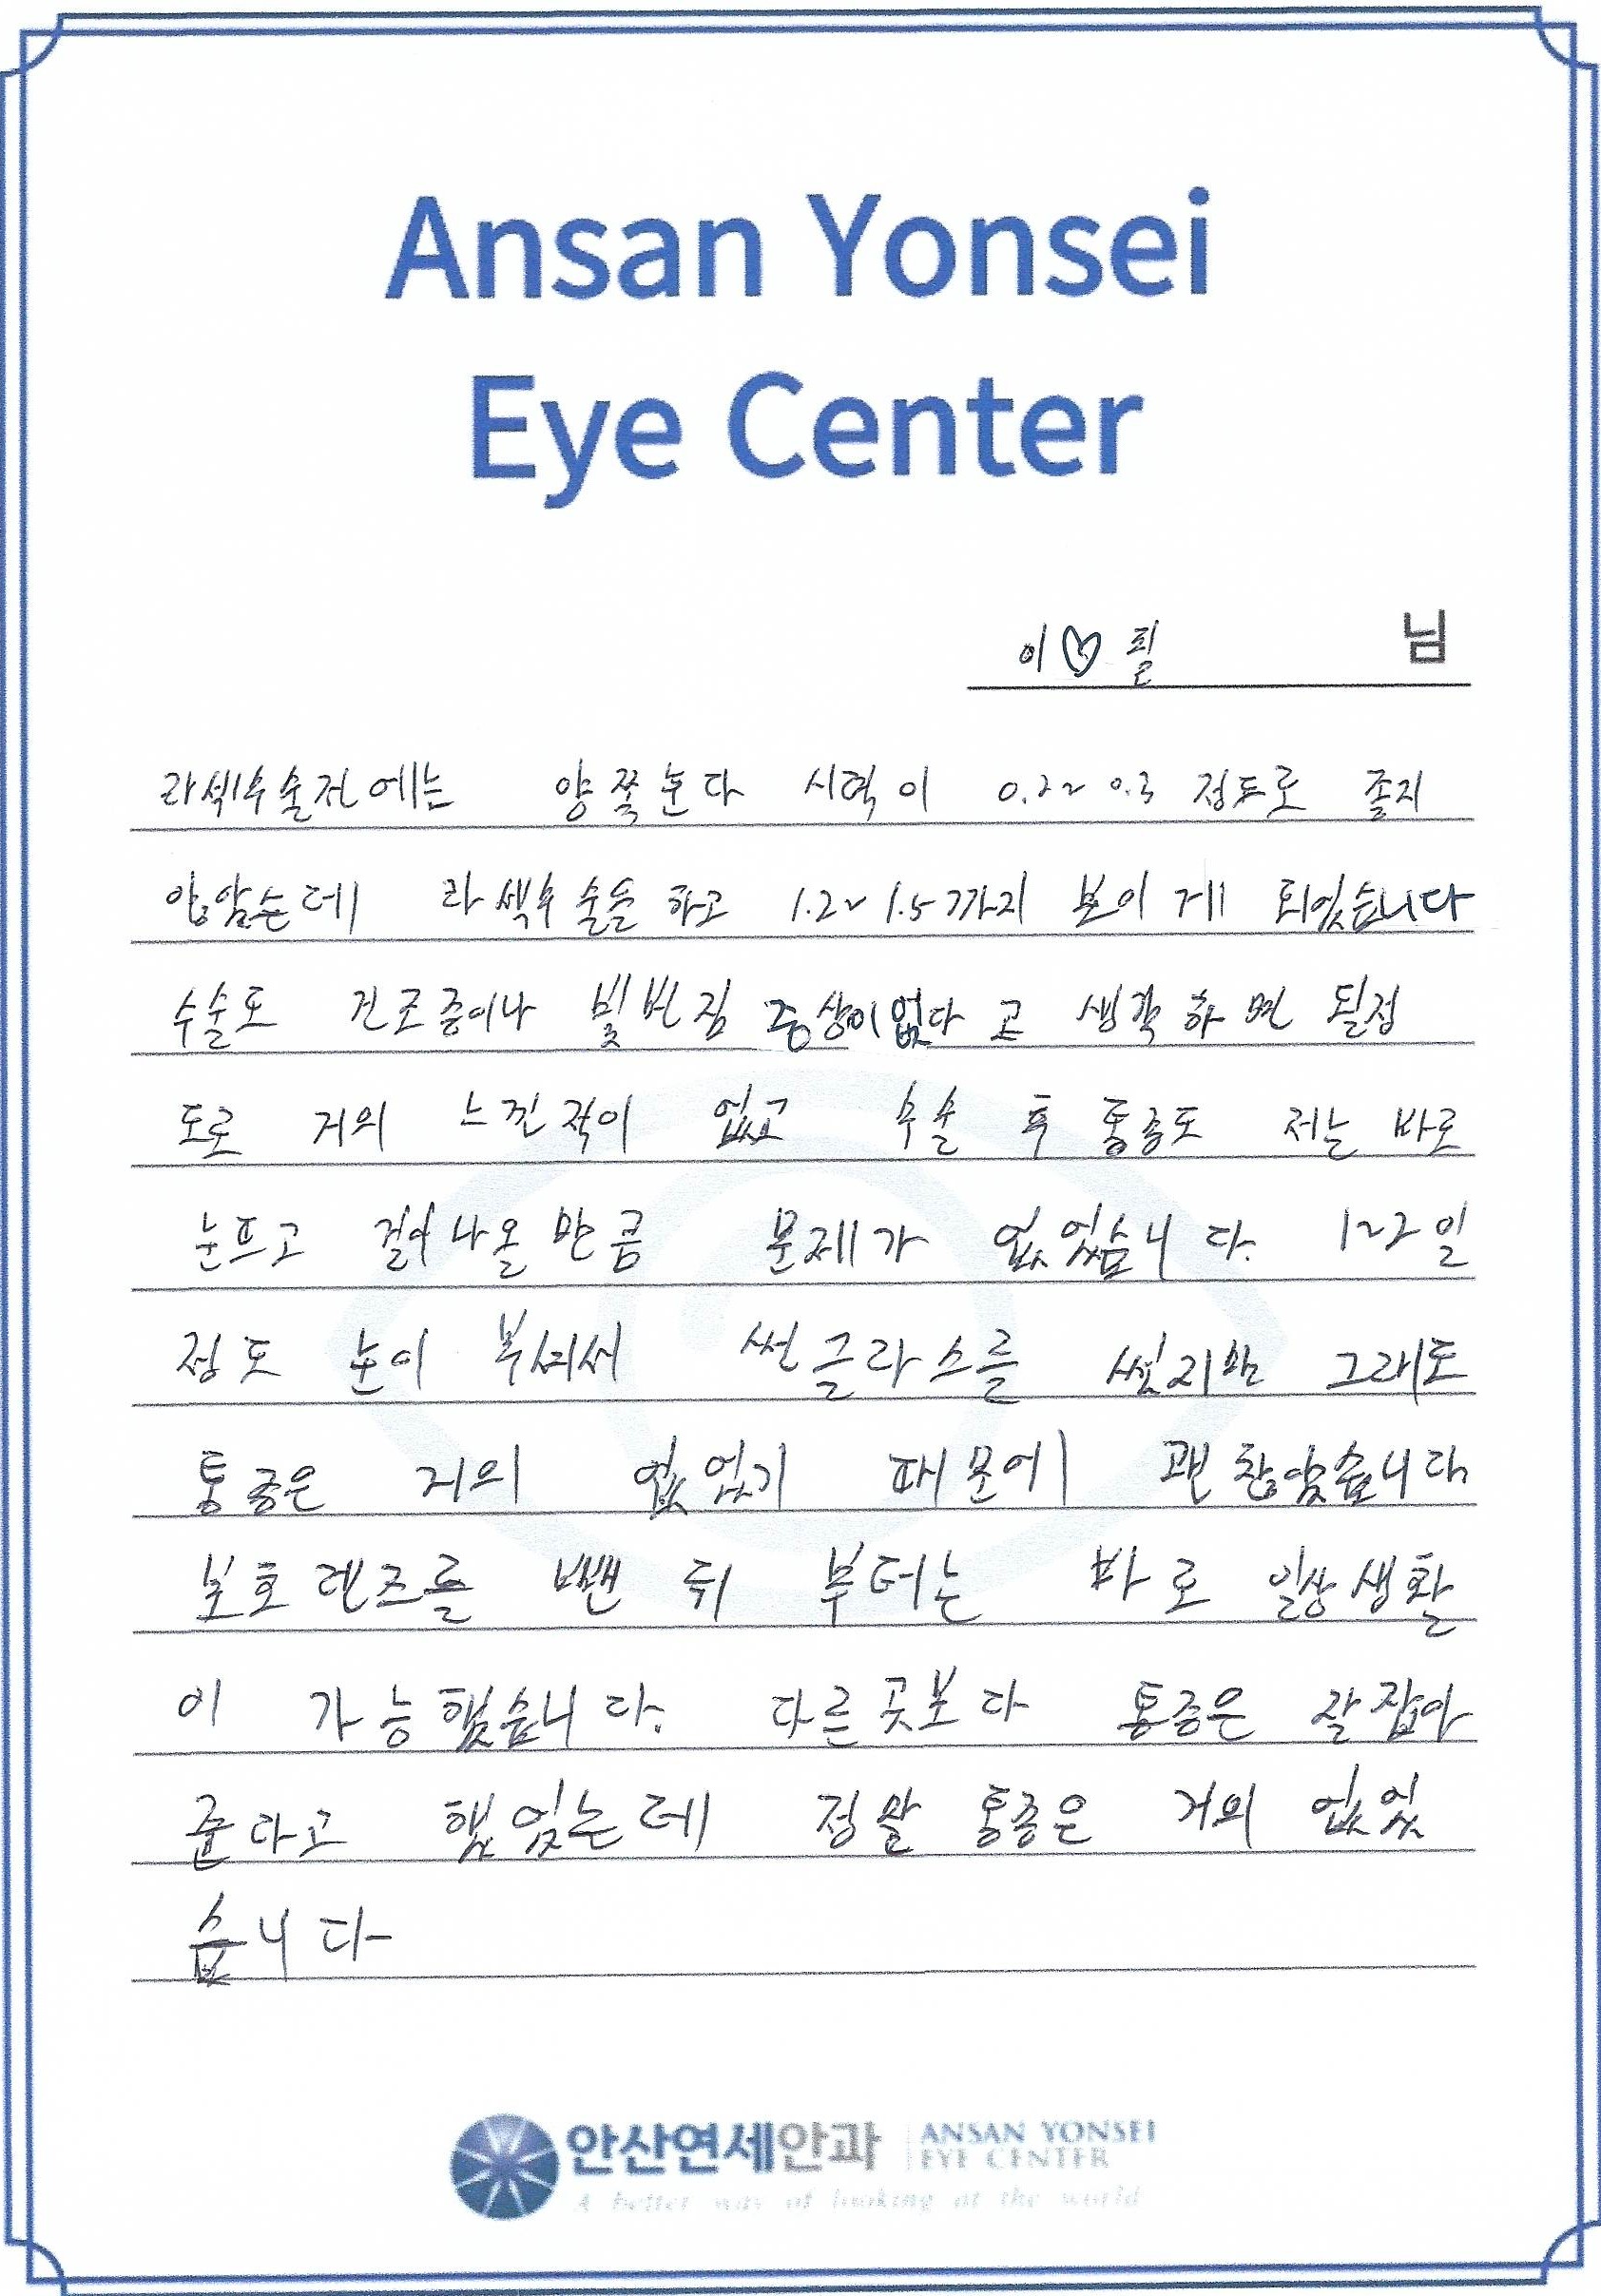 Ansan Yonsei
Eye Center
이♡필 님
라섹수술전에는 양쪽눈다 시력이 0.2~0.3 정도로 좋지
않았는데 라섹수술을 하고 1.2~1.5까지 보이게 되었습니다
수술도 건조증이나 빛번짐 증상이없다고 생각하면 될정
도로 거의 느낀적이 없고 수술 후 통증도 저는 바로
눈뜨고 걸어나올만큼 문제가 없었습니다. 1~2일
정도 눈이 부셔서 썬글라스를 썼지만 그래도
통증은 거의 없었기 때문에 괜찮았습니다.
보호렌즈를 뺀 뒤 부터는 바로 일상생활
이 가능했습니다. 다른곳보다 통증은 잘잡아
준다고 했었는데 정말 통증은 거의 없었
습니다
안산연세안과 ANSAN YONSEI
EYE CENTER
A better way of looking at the world